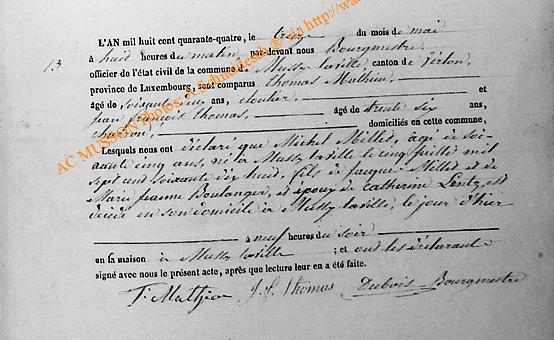 13
L'AN mil huit cent quarante-quatre, le treize du mois de mai
à huit heures du matin par-devant nous Bourgmestre,
officier de l'état civil de la commune de Mussy laville canton de Virton,
province de Luxembourg, sont comparus thomas Mathieu,
âgé de soixante deux ans, cloutier, et
jean françois thomas, âgé de trente six ans,
charron, domiciliés en cette commune,
Lesquels nous ont déclaré que Michel Millet, âgé de soi-
xante cinq ans, né à Mussy la ville le cinq juillet mil
sept cent soixante dix huit, fils de Jacques Millet et de
Marie jeanne Boulanger, et époux de Catherine Lentz, est
décédé en son domicile à Mussy laville, le jour d'hier
à neuf heures du soir
en sa maison à Mussy laville ; et ont les déclarants
signé avec nous le présent acte, après que lecture leur en a été faite.
T. Mathieu J. f. thomas Dubois Bourgmestre
AC MUSSON Photos A. Schneidesch ® on http://wa